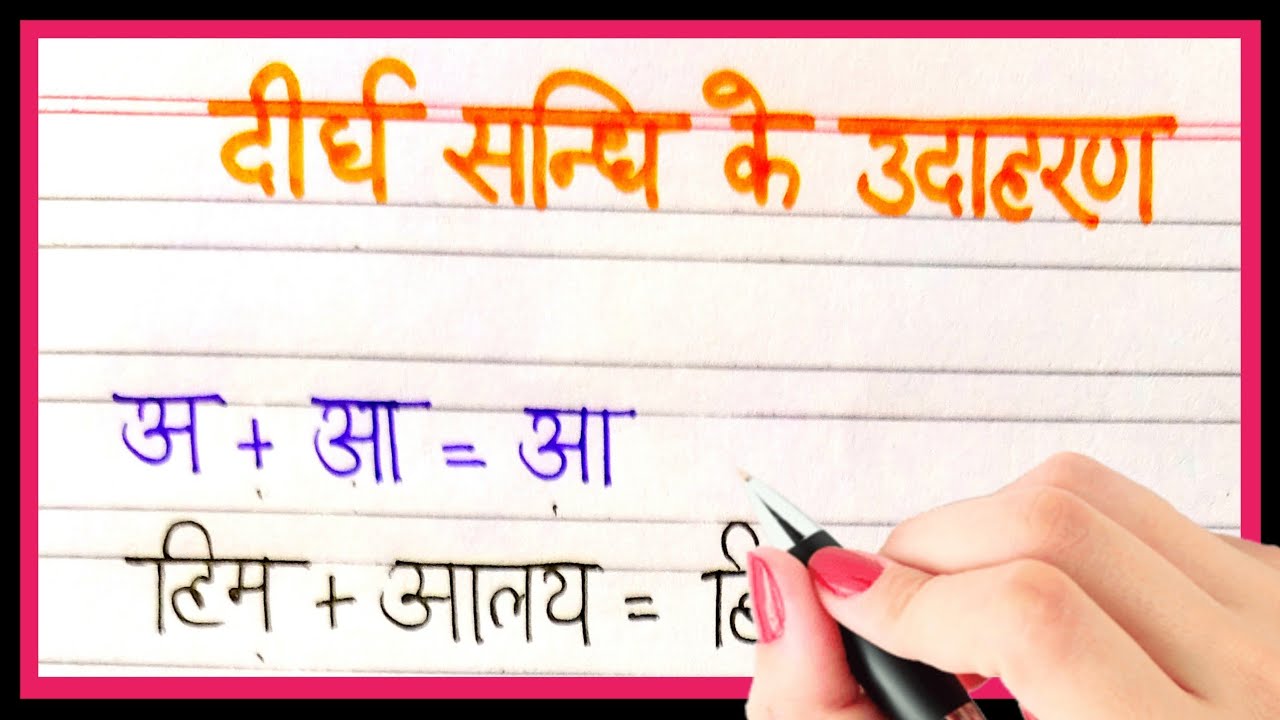 दीर्घ सन्धि के उदाहरण
अ + आ = आ
हिम + आलय = हि